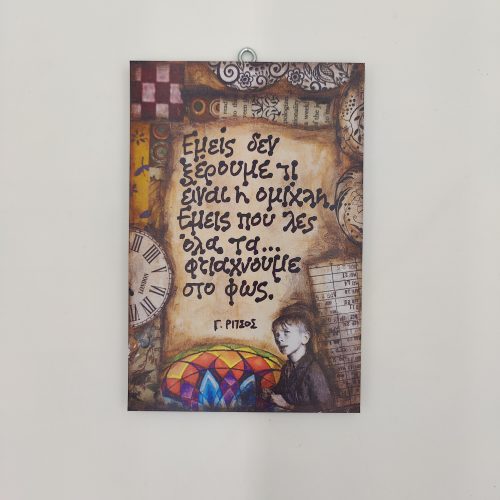 Εμείς δεν
ξέρουμε τι
είναι η ομίχλη.
Εμείς που λες
όλα τα...
φτιάχνουμε
στο φως.
Γ. ΡΙΤΣΟΣ